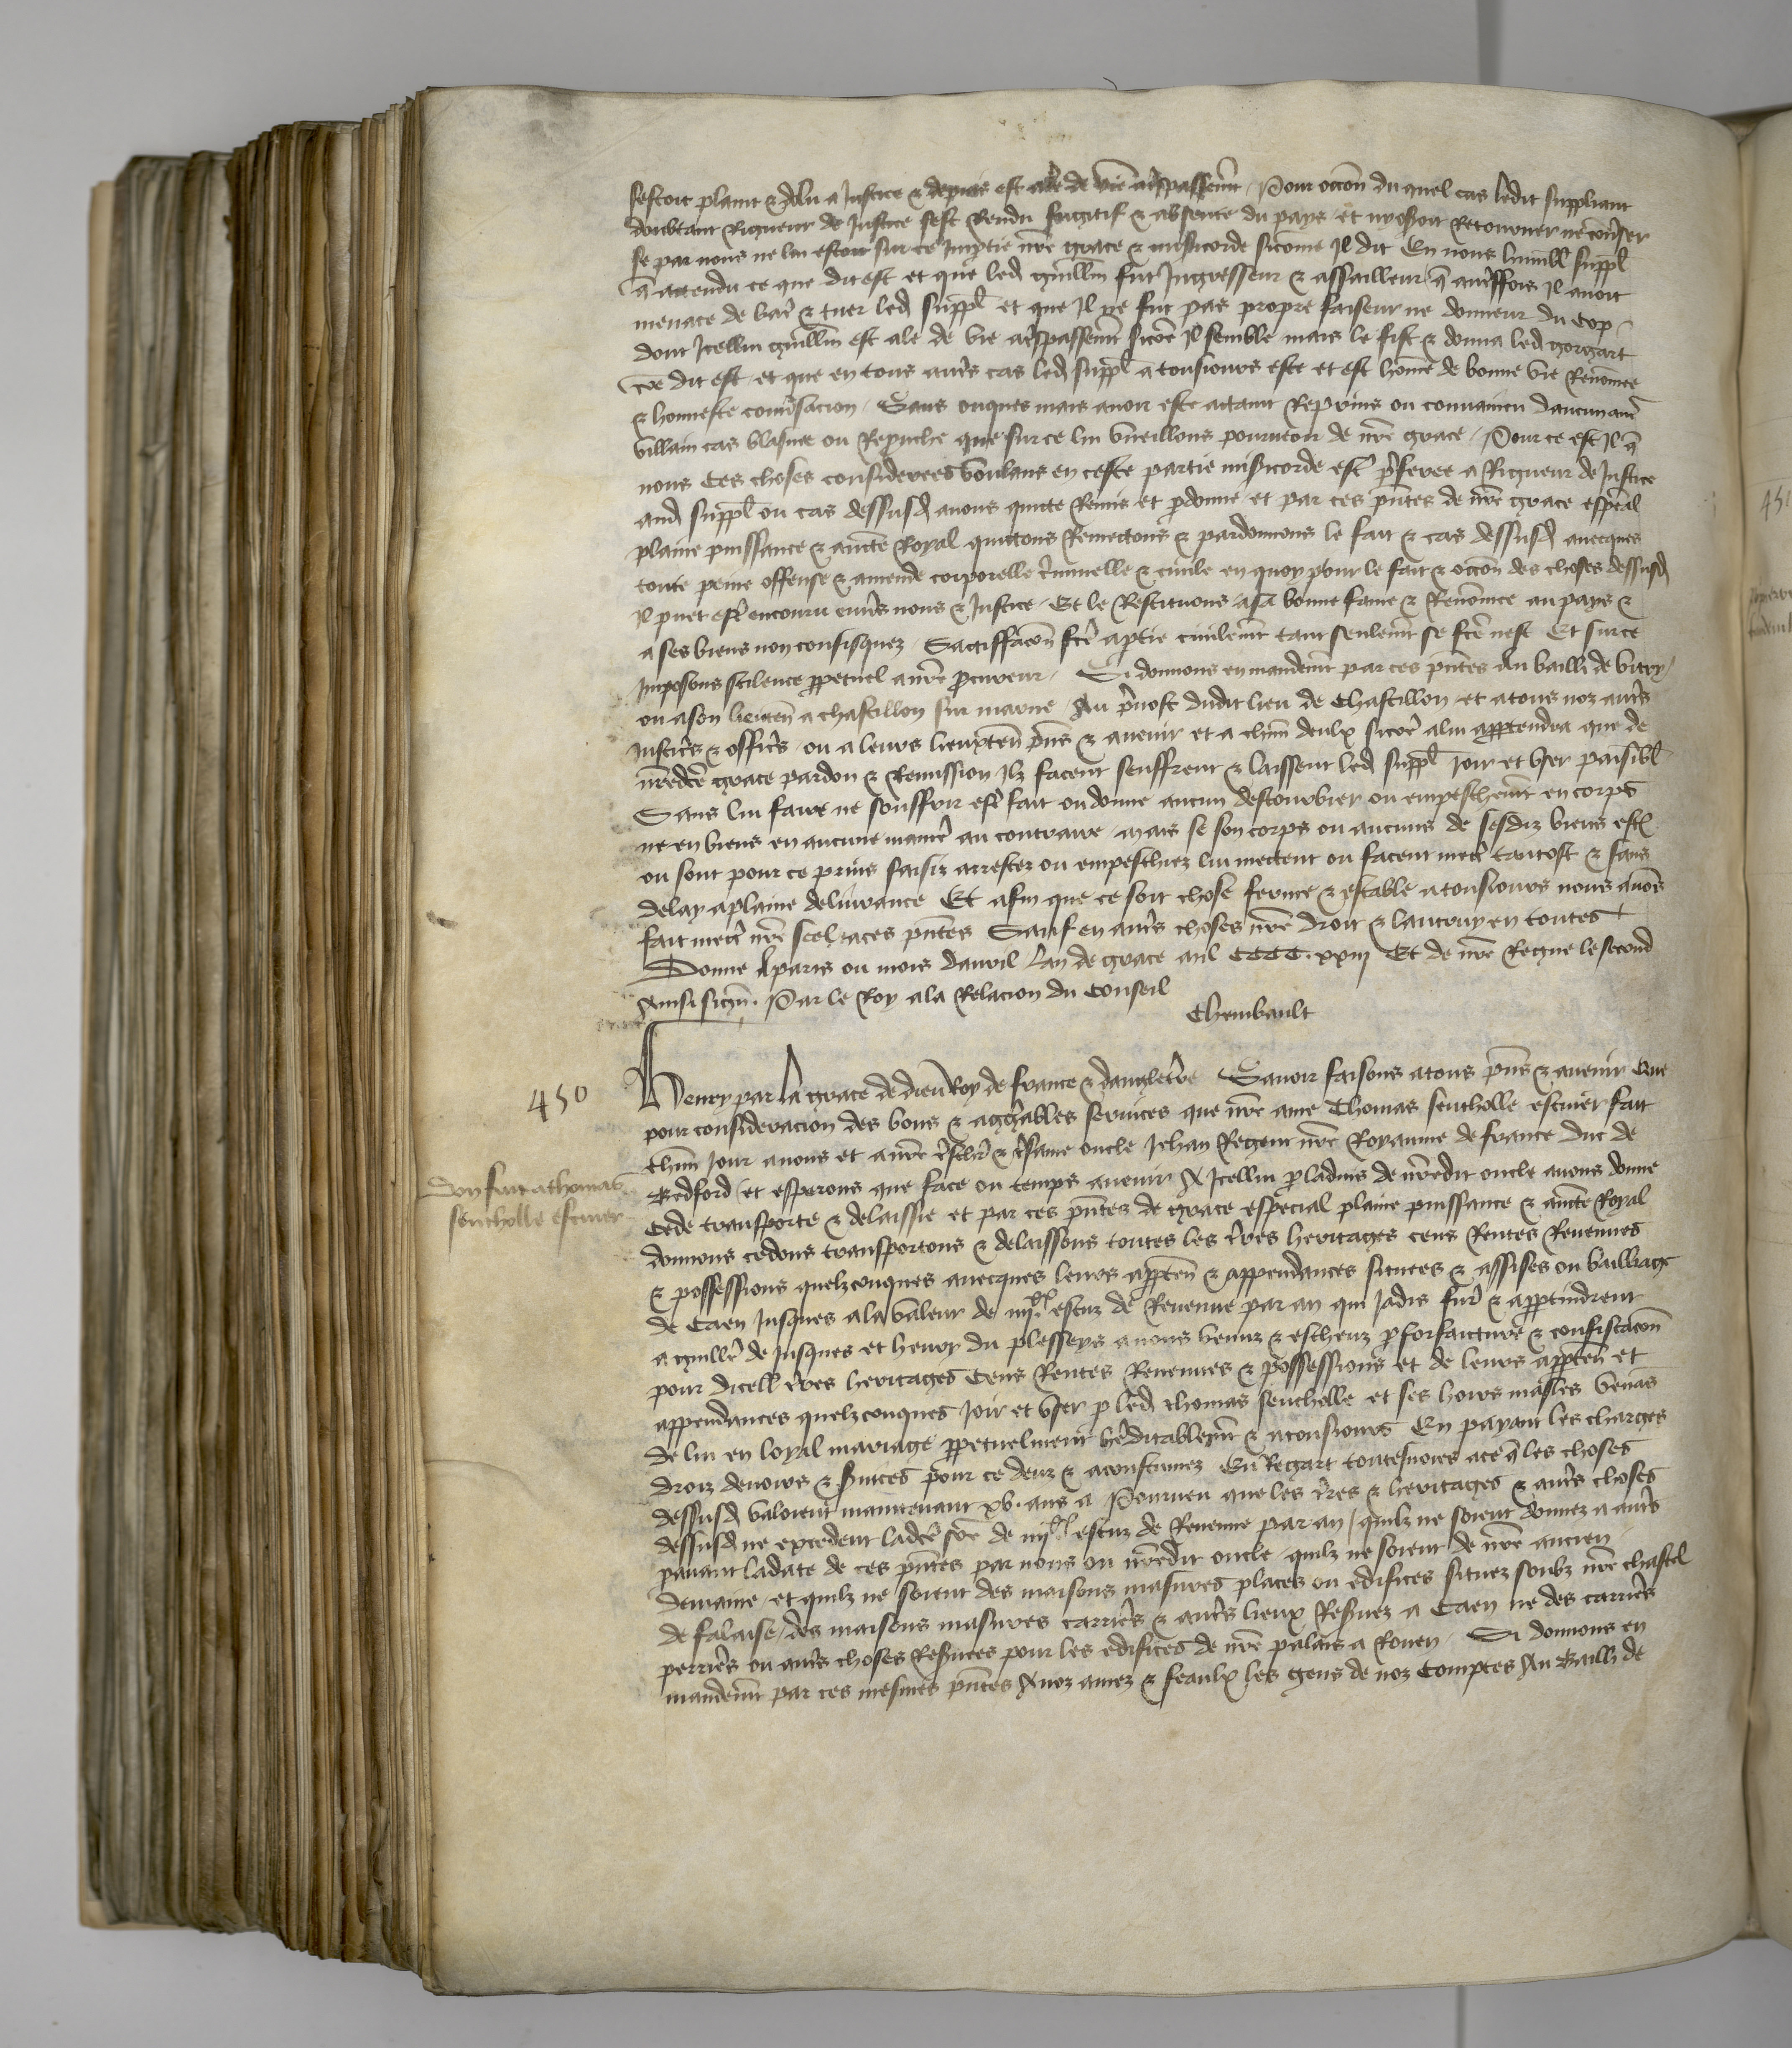 sestoit plaint & dolu a Justice & depuis est ale de vie a trespassemt Pour occōn du quel cas ledit suppliant
doubtant Rigueur de Justice sest Rendu fugitif & absente du pays et nyoseroit Retourner ne conũser
se par nous ne lui estoit sur ce Impartie nr̃e grace & misericorde sicome Il dit En nous humbl̃ suppl̃
q̃ attendu ce que dit est et que led guillm̃ fut Ingresseur & assailleur q̃ autr̃ffois Il avoit
menace de batr̃ & tuer led suppl̃ et que Il ne fut pas propre faiseur ne donneur du cop
dont Icellui guillm̃ est ale de vie a tr̃spassemt sicōe Il semble mais le fist & donna led gorgart
cōe dit est et que en tous autr̃s cas led suppl̃ a tousiours este et est hom̃e de bonne vie Renom̃ee
& honneste conũsacion Sans onques mais avoir este attaint Reprins ou convaincu daucun autr̃
villain cas blasme ou Reprouche que sur ce lui vueillons pourveoir de nr̃e grace Pour ce est Il q̃
nous Ces choses considerees voulans en ceste partie misicorde estr̃ pr̃feree a Rigueur de Justice
aud suppl̃ ou cas dessusd avons quitte Remis et pdonne et par ces pñtes de nr̃e grace esp̃eal
plaine puissance & auctẽ Royal quittons Remettons & pardonnons le fait & cas dessusd avecques
toute peine offense & amende corporelle cr̃iminelle & civile en quoy pour le fait & occōn des choses dessusd
Il puet estr̃ encouru env̾s nous & Justice Et le Restituons a sa bonne fame & Renom̃ee au pays &
a ses biens non confisquez Sattiffacōn fcẽ a ptie civilemt tant seulemt se fcẽ nest Et sur ce
Imposons scilence ppetuel a nr̃e pcureur Si donnons en mandemt par ces pñtes Au bailli de vitry
ou a son lieuten̄ a chastillon sur marne Au p̃vost dudit lieu de Chastillon et a tous noz autr̃s
Justicr̃s & officr̃s ou a leurs lieuxten̄ p̃ns & avenir et a chũn deulx sicōe a lui appetendra que de
nr̃edcẽ grace pardon & Remission Ilz facent seuffrent & laissent led suppl̃ Joir et user paisibl̃
Sans lui faire ne souffrir estr̃ fait ou donne aucun destourbier ou empeschemt en corps
ne en biens en aucune manir̃ au contraire mais se son corps ou aucuns de sesdiz biens estr̃
ou sont pour ce prins saisiz arrestez ou empeschiez lui mettent ou facent mettr̃ tantost & sans
delay a plaine delivrance Et afin que ce soit chose ferme & estable a tousiours nous avons
fait mettr̃ nr̃e scel a ces pñtes Sauf en autr̃s choses nr̃e droit & lautruy en toutes
Donne A paris ou mois davril Lan de grace mil CCCC. xxiij Et de nr̃e Regne le second
Ainsi sign̄. Par le Roy a la Relacion du Conseil
Thembault
450
Henry par la grace de dieu Roy de france & dangleterr̃e Savoir faisons a tous p̃ns & avenir Que
pour consideracion des bons & aggr̃ables services que nr̃e ame Thomas senthelle escuier fait
chũn Jour a nous et a nr̃e tr̃scher & tr̃same oncle Jehan Regent nr̃e Royaume de france duc de
Bedford et esperons que face ou temps avenir A Icellui p ladvis de nr̃edit oncle avons donne
Cede transporte & delaissie et par ces pñtes de grace especial plaine puissance & auctẽ Royal
donnons cedons transportons & delaissons toutes les tr̃res heritages cens Rentes Revenues
& possessions quelzconques avecques leurs apparten̄ & appendances situees & assises ou bailliage
de Caen Jusques a la valeur de iiijxx. escuz de Revenue par an qui Jadis furẽ & appartindrent
a guillẽ de Jusques et henry du plesseys a nous venuz & escheuz p forfaicture & confiscacōn
pour dicell tr̃res heritages Cens Rentes Revenues & possessions et de leurs apparten̄ et
appendances quelzconques Joir et user p led thomas senthelle et ses hoirs masles venãs
de lui en loyal mariage ppetuelment heditablemt & a tousiours En payant les charges
droiz devoirs & ŝuices pour ce deuz & acoustumez En Regart toutesvoies a ce q̃ les choses
dessusd valoient maintenant xv. ans a Pourveu que les tr̃res & heritages & autr̃s choses
dessusd ne excedent ladcẽ som̃e de iiijxx. escuz de Revenue par an quilz ne soient donnez a autr̃s
pavant ladate de ces pñtes par nous ou nr̃edit oncle quilz ne soient de nr̃e ancien
demaine et quilz ne soient des maisons masures places ou edifices situez soubz nr̃e chastel
de falaise des maisons masures carrir̃s & autr̃s lieux Reŝuez a Caen ne des carrir̃s
perrir̃s ou autr̃s choses Reŝuees pour les edifices de nr̃e palais a Rouen Si donnons en
mandemt par ces mesmes pñtes A noz amez & feaulx les gens de noz Comptes Au Bailli de
Don fait a thomas
senthelle escuier